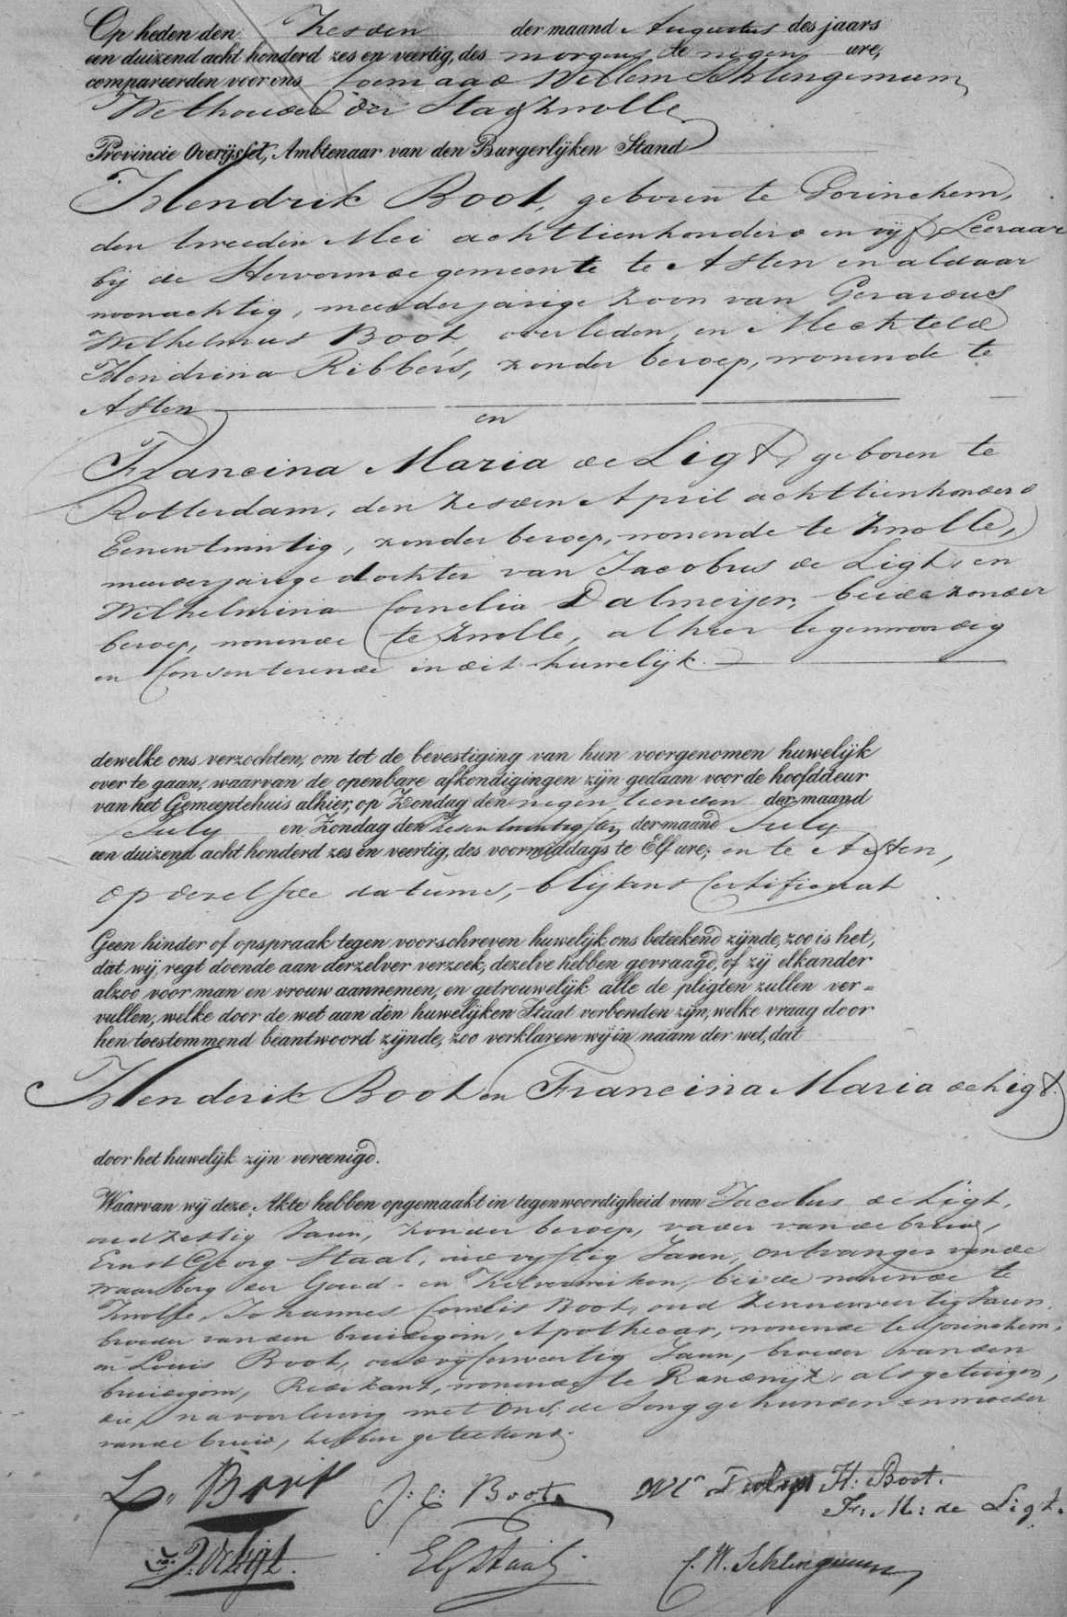 Op heden den Zesden der maand Augustus des jaars
een duizend acht honderd zes en veertig, des morgens te negen ure,
compareerden voor ons Coenraad Willem Schlingemann
Wethouder der Stad Zwolle
Provincie Overijssel, Ambtenaar van den Burgerlijken Stand
Hendrik Boot, geboren te Gorinchem,
den tweeden Mei achttienhonderd en vijf, Leeraar
bij de Hervormde gemeente te Asten en aldaar
woonachtig, meerderjarige zoon van Gerardus
Wilhelmus Boot, overleden, en Mechteld
Hendrina Ribbers, zonder beroep, wonende te
Asten
en
Francina Maria de Ligt, geboren te
Rotterdam, den Zesden April achttienhonderd
Eenentwintig, zonder beroep, wonende te Zwolle,
meerderjarige dochter van Jacobus de Ligt, en
Wilhelmina Cornelia Dalmeijer, beide zonder
beroep, wonende te Zwolle, alhier tegenwoordig
en Consenterende in dit huwelijk.
dewelke ons verzochten, om tot de bevestiging van hun voorgenomen huwelijk
over te gaan, waarvan de openbare afkondigingen zijn gedaan voor de hoofddeur
van het Gemeentehuis alhier, op Zondag den negentienden der maand
July en Zondag den Zesentwintigsten der maand July
een duizend acht honderd zes en veertig, des voormiddags te Elf ure; en te Asten,
op dezelfde datums, blijkens Certificaat
Geen hinder of opspraak tegen voorschreven huwelijk ons beteekend zijnde, zoo is het,
dat wij, regt doende aan derzelver verzoek, dezelve hebben gevraagd, of zij elkander
alzoo voor man en vrouw aannemen, en getrouwelijk alle de pligten zullen ver=
vullen, welke door de wet aan den huwelijken Staat verbonden zijn, welke vraag door
hen toestemmend beantwoord zijnde, zoo verklaren wij in naam der wet, dat
Hendrik Boot en Francina Maria de Ligt
door het huwelijk zijn vereenigd.
Waarvan wij deze Akte hebben opgemaakt in tegenwoordigheid van Jacobus de Ligt,
oud zestig Jaren, zonder beroep, vader van de bruid,
Ernst Georg Staal, oud vyftig Jaren, ontvanger van de
waarborg der Goud- en Zilverwerken, beide wonende te
Zwolle, Johannes Cornelis Boot, oud Jaren,
broeder van den bruidegom, Apothecar, wonende te Gorinchem,
en Louis Boot, oud vyfenveertig Jaren, broeder van den
bruidegom, Predikant, wonende te Randwijk, als getuigen,
die, na voorlezing met Ons, de Jong gehuwden en moeder
van de bruid, hebben geteekend.
L. Boot J: C: Boot H. Boot.
Fr. M: de Ligt.
J. de Ligt. E G Staal C. W. Schlingemann